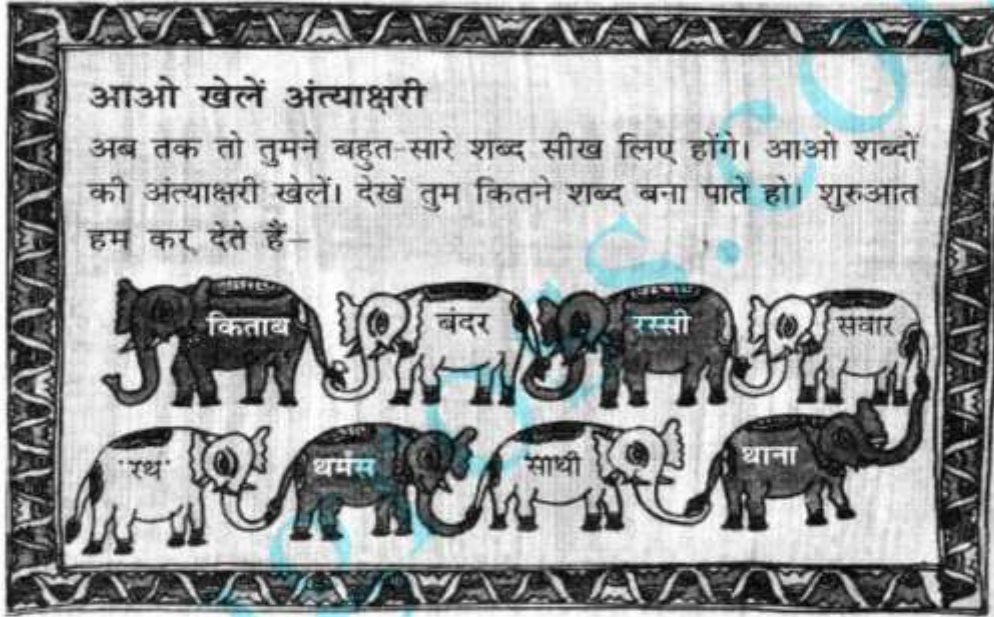 आओ खेलें अंत्याक्षरी
अब तक तो तुमने बहुत-सारे शब्द सीख लिए होंगे। आओ शब्दों
की अंत्याक्षरी खेलें। देखें तुम कितने शब्द बना पाते हो। शुरुआत
हम कर देते हैं–
किताब बंदर रस्सी सवार
रथ थर्मस साथी थाना